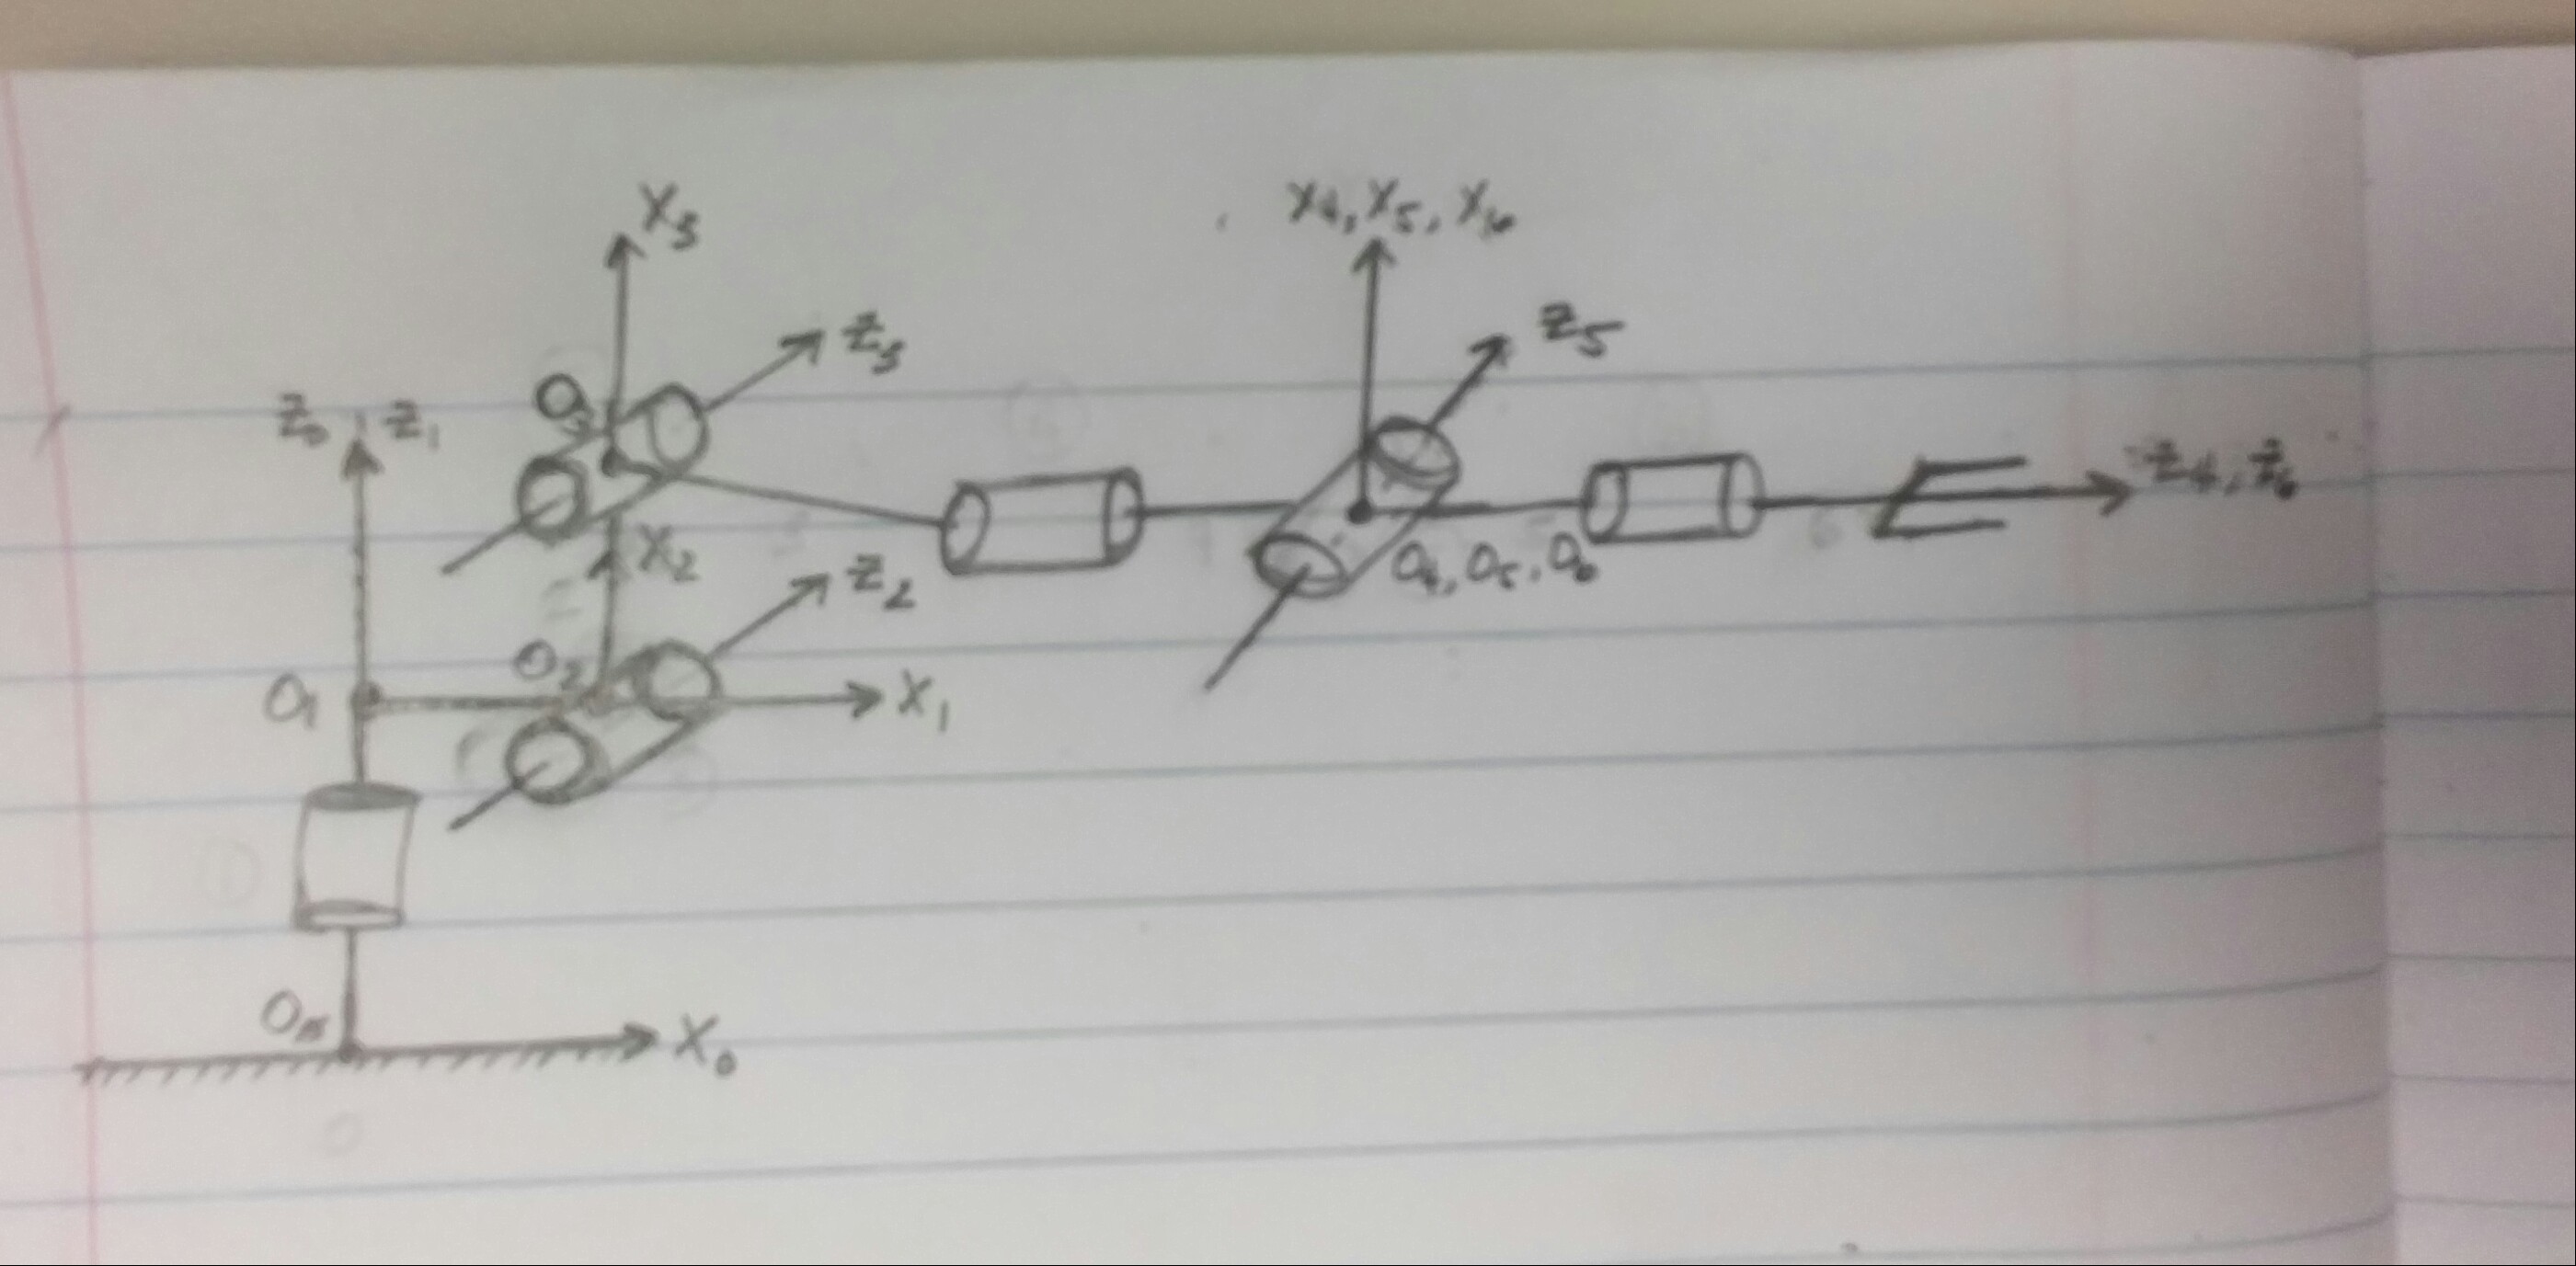 X3
X4, X5, X6
Z5
Z3
O3
Z0, Z1
Z4, Z6
X2
Z2
O4, O5, O6
O2
O1
X1
O0
X0